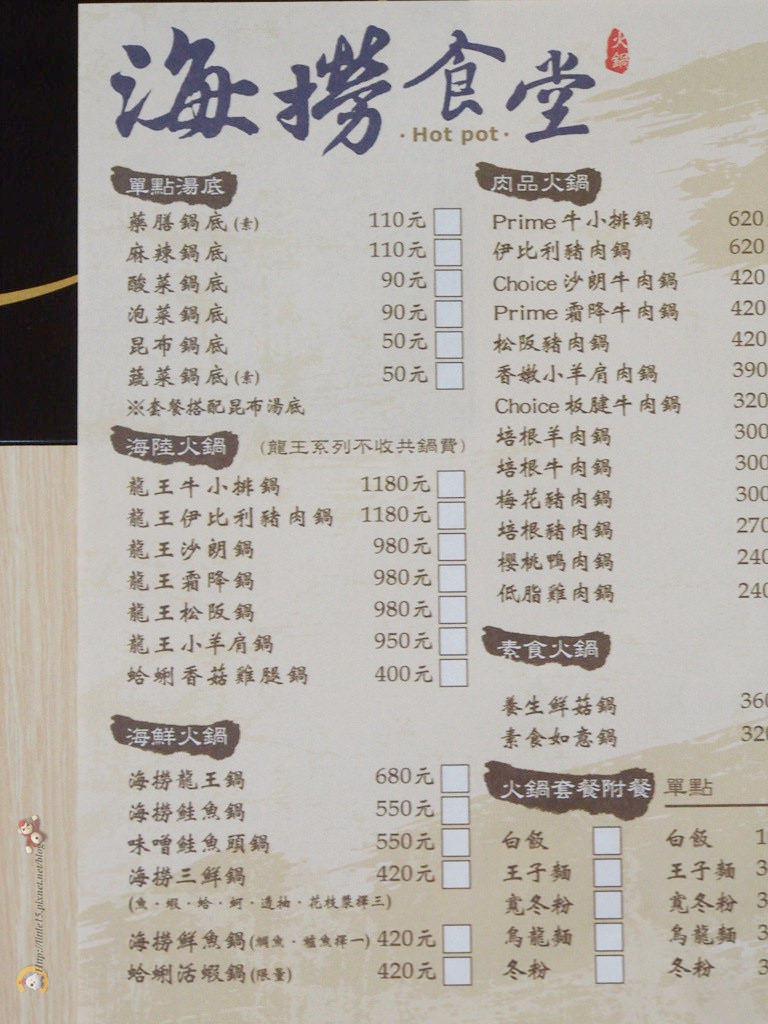 海撈食堂
火鍋
·Hot pot·
單點湯底
藥膳鍋底(素) 110元
麻辣鍋底 110元
酸菜鍋底 90元
泡菜鍋底 90元
昆布鍋底 50元
蔬菜鍋底(素) 50元
※套餐搭配昆布湯底
海陸火鍋 (龍王系列不收共鍋費)
龍王牛小排鍋 1180元
龍王伊比利豬肉鍋 1180元
龍王沙朗鍋 980元
龍王霜降鍋 980元
龍王松阪鍋 980元
龍王小羊肩鍋 950元
蛤蜊香菇雞腿鍋 400元
海鮮火鍋
海撈龍王鍋 680元
海撈鮭魚鍋 550元
味噌鮭魚頭鍋 550元
海撈三鮮鍋 420元
(魚·蝦·蛤·蚵·透抽·花枝漿擇三)
海撈鮮魚鍋(鯛魚·鱸魚擇一) 420元
蛤蜊活蝦鍋(限量) 420元
肉品火鍋
Prime牛小排鍋 620
伊比利豬肉鍋 620
Choice沙朗牛肉鍋 420
Prime霜降牛肉鍋 420
松阪豬肉鍋 420
香嫩小羊肩肉鍋 390
Choice板腱牛肉鍋 320
培根羊肉鍋 300
培根牛肉鍋 300
梅花豬肉鍋 300
培根豬肉鍋 270
櫻桃鴨肉鍋 240
低脂雞肉鍋 240
素食火鍋
養生鮮菇鍋 360
素食如意鍋 320
火鍋套餐附餐 單點
白飯 白飯 1
王子麵 王子麵 3
寬冬粉 寬冬粉 3
烏龍麵 烏龍麵 3
冬粉 冬粉 3